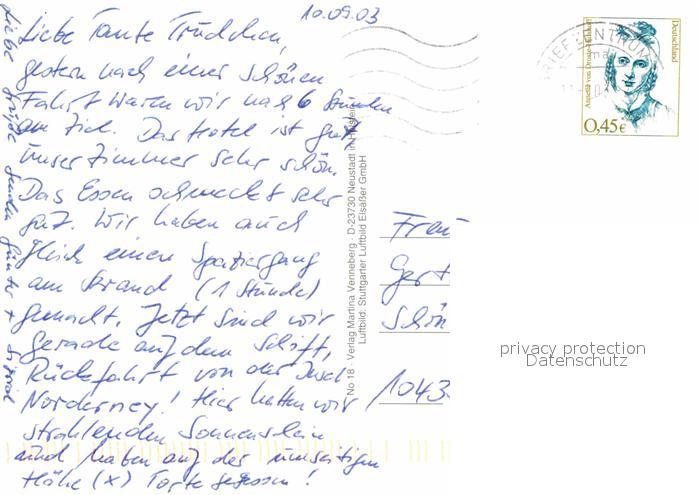 10.09.03
Liebe Tante Trudchen,
gestern nach einer schönen
Fahrt waren wir nach 6 Stunden
am Ziel. Das Hotel ist gut,
unser Zimmer sehr schön.
Das Essen schmeckt sehr
gut. Wir haben auch
gleich einen Spaziergang
am Strand (1 Stunde)
gemacht. Jetzt sind wir
gerade auf dem Schiff,
Rückfahrt von der Insel
Norderney! Hier hatten wir
strahlenden Sonnenschein
und haben auf der umseitigen
Höhe (x) Torte gegessen!
Liebe Grüße senden Günter +
No 18 - Verlag Martina Venneberg · D-23730 Neustadt in Holstein
Luftbild: Stuttgarter Luftbild Elsäßer GmbH
BRIEFZENTRUM
Deutschland
Annette von Droste-Hülshoff
0,45€
Frau
Gert
Schön
1043
privacy protection
Datenschutz